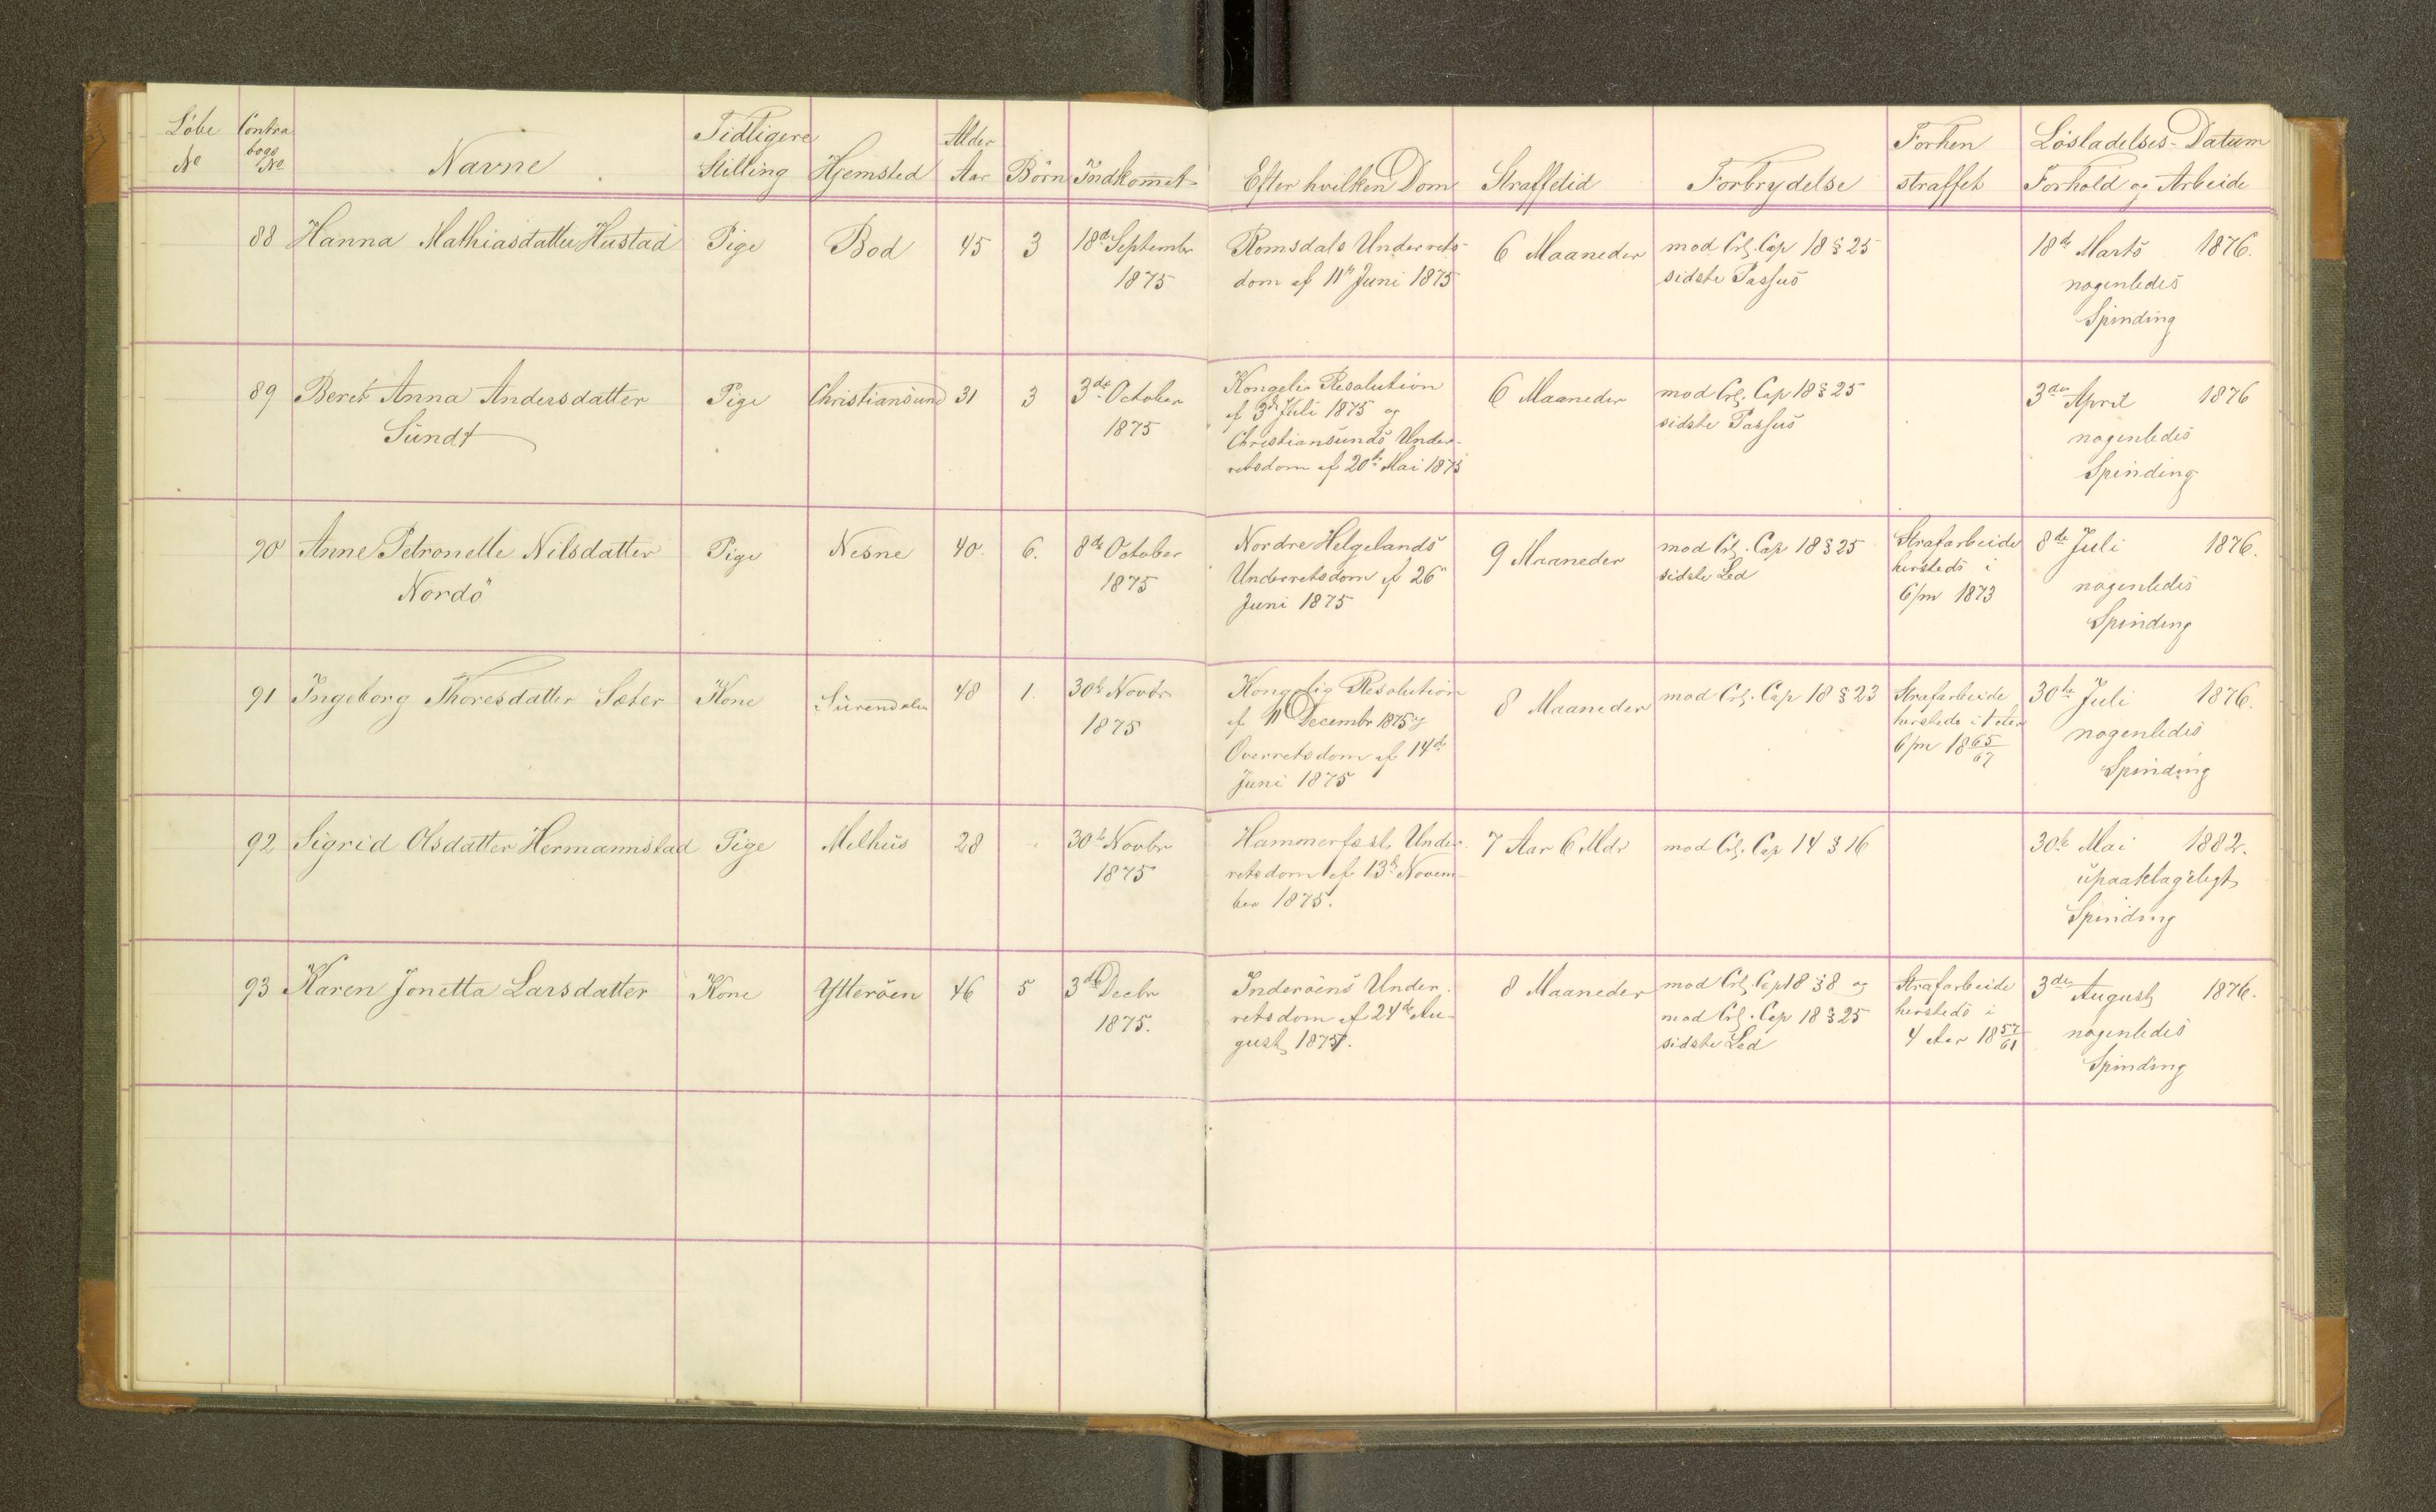 Løbe No Contrabogs No Navne Tidligere Stilling Hjemsted Alder Aar Børn Indkommet Efter hvilken Dom Straffetid Forbrydelse Forhen straffet Løsladelses-Datum Forhold og Arbeide
88 Hanna Mathiasdatter Hustad Pige Bod 45 3 18de Septembr
1875
Romsdals Underrets-
dom af 11te Juni 1875
6 Maaneder
mod Crl. Cap 18 § 25
sidste Passus
18de Marts 1876.
nogenledes
Spinding
89 Beret Anna Andersdatter
Sundt
Pige Christiansund 31 3 3die October
1875
Kongelig Resolution
af 3die Juli 1875 og
Christiansunds Under-
retsdom af 20de Mai 1875
6 Maaneder
mod Crl. Cap 18 § 25
sidste Passus
3die April 1876
nogenledes
Spinding
90 Anne Petronelle Nilsdatter
Nordö
Pige Nesne 40. 6. 8de October
1875
Nordre Helgelands
Underretsdom af 26
Juni 1875
9 Maaneder
mod Crl. Cap 18 § 25
sidste Led
Strafarbeide
hersteds i
6/m 1873
8de Juli 1876.
nogenledes
Spinding
91 Ingeborg Thoresdatter Sæter Kone Surendalen 48 1. 30te Novbr
1875
Kongelig Resolution
af 11 Decembr 1875 og
Overretsdom af 14de
Juni 1875
8 Maaneder
mod Crl. Cap 18 § 23
Strafarbeide
hersteds i 1 Aar
6/m 1865/67
30te Juli 1876.
nogenledes
Spinding
92 Sigrid Olsdatter Hermannstad Pige Melhus 28 - 30te Novbr
1875
Hammerfest Under-
retsdom af 13de Novem-
ber 1875.
7 Aar 6 Mdr
mod Crl. Cap 14 § 16
30te Mai 1882.
upaaklageligt
Spinding
93 Karen Jonetta Larsdatter Kone Ytterøen 46 5 3die Decbr
1875.
Inderøens Under-
retsdom af 24de Au-
gust 1875.
8 Maaneder
mod Crl. Cap 18 § 8 og
mod Crl. Cap 18 § 25
sidste Led
Strafarbeide
hersteds i
4 Aar 1857/61
3die August 1876.
nogenledes
Spinding